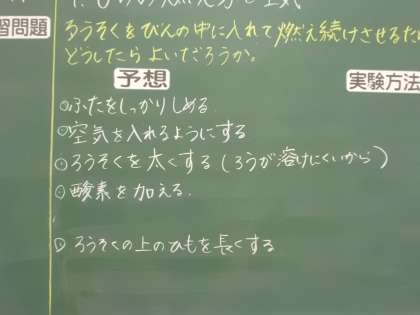 習問題
ろうそくをびんの中に入れて燃え続けさせるため
どうしたらよいだろうか。
予想
実験方法
ふたをしっかりしめる
空気を入れるようにする
ろうそくを太くする(ろうが溶けにくいから)
酸素を加える
ろうそくの上のひもを長くする